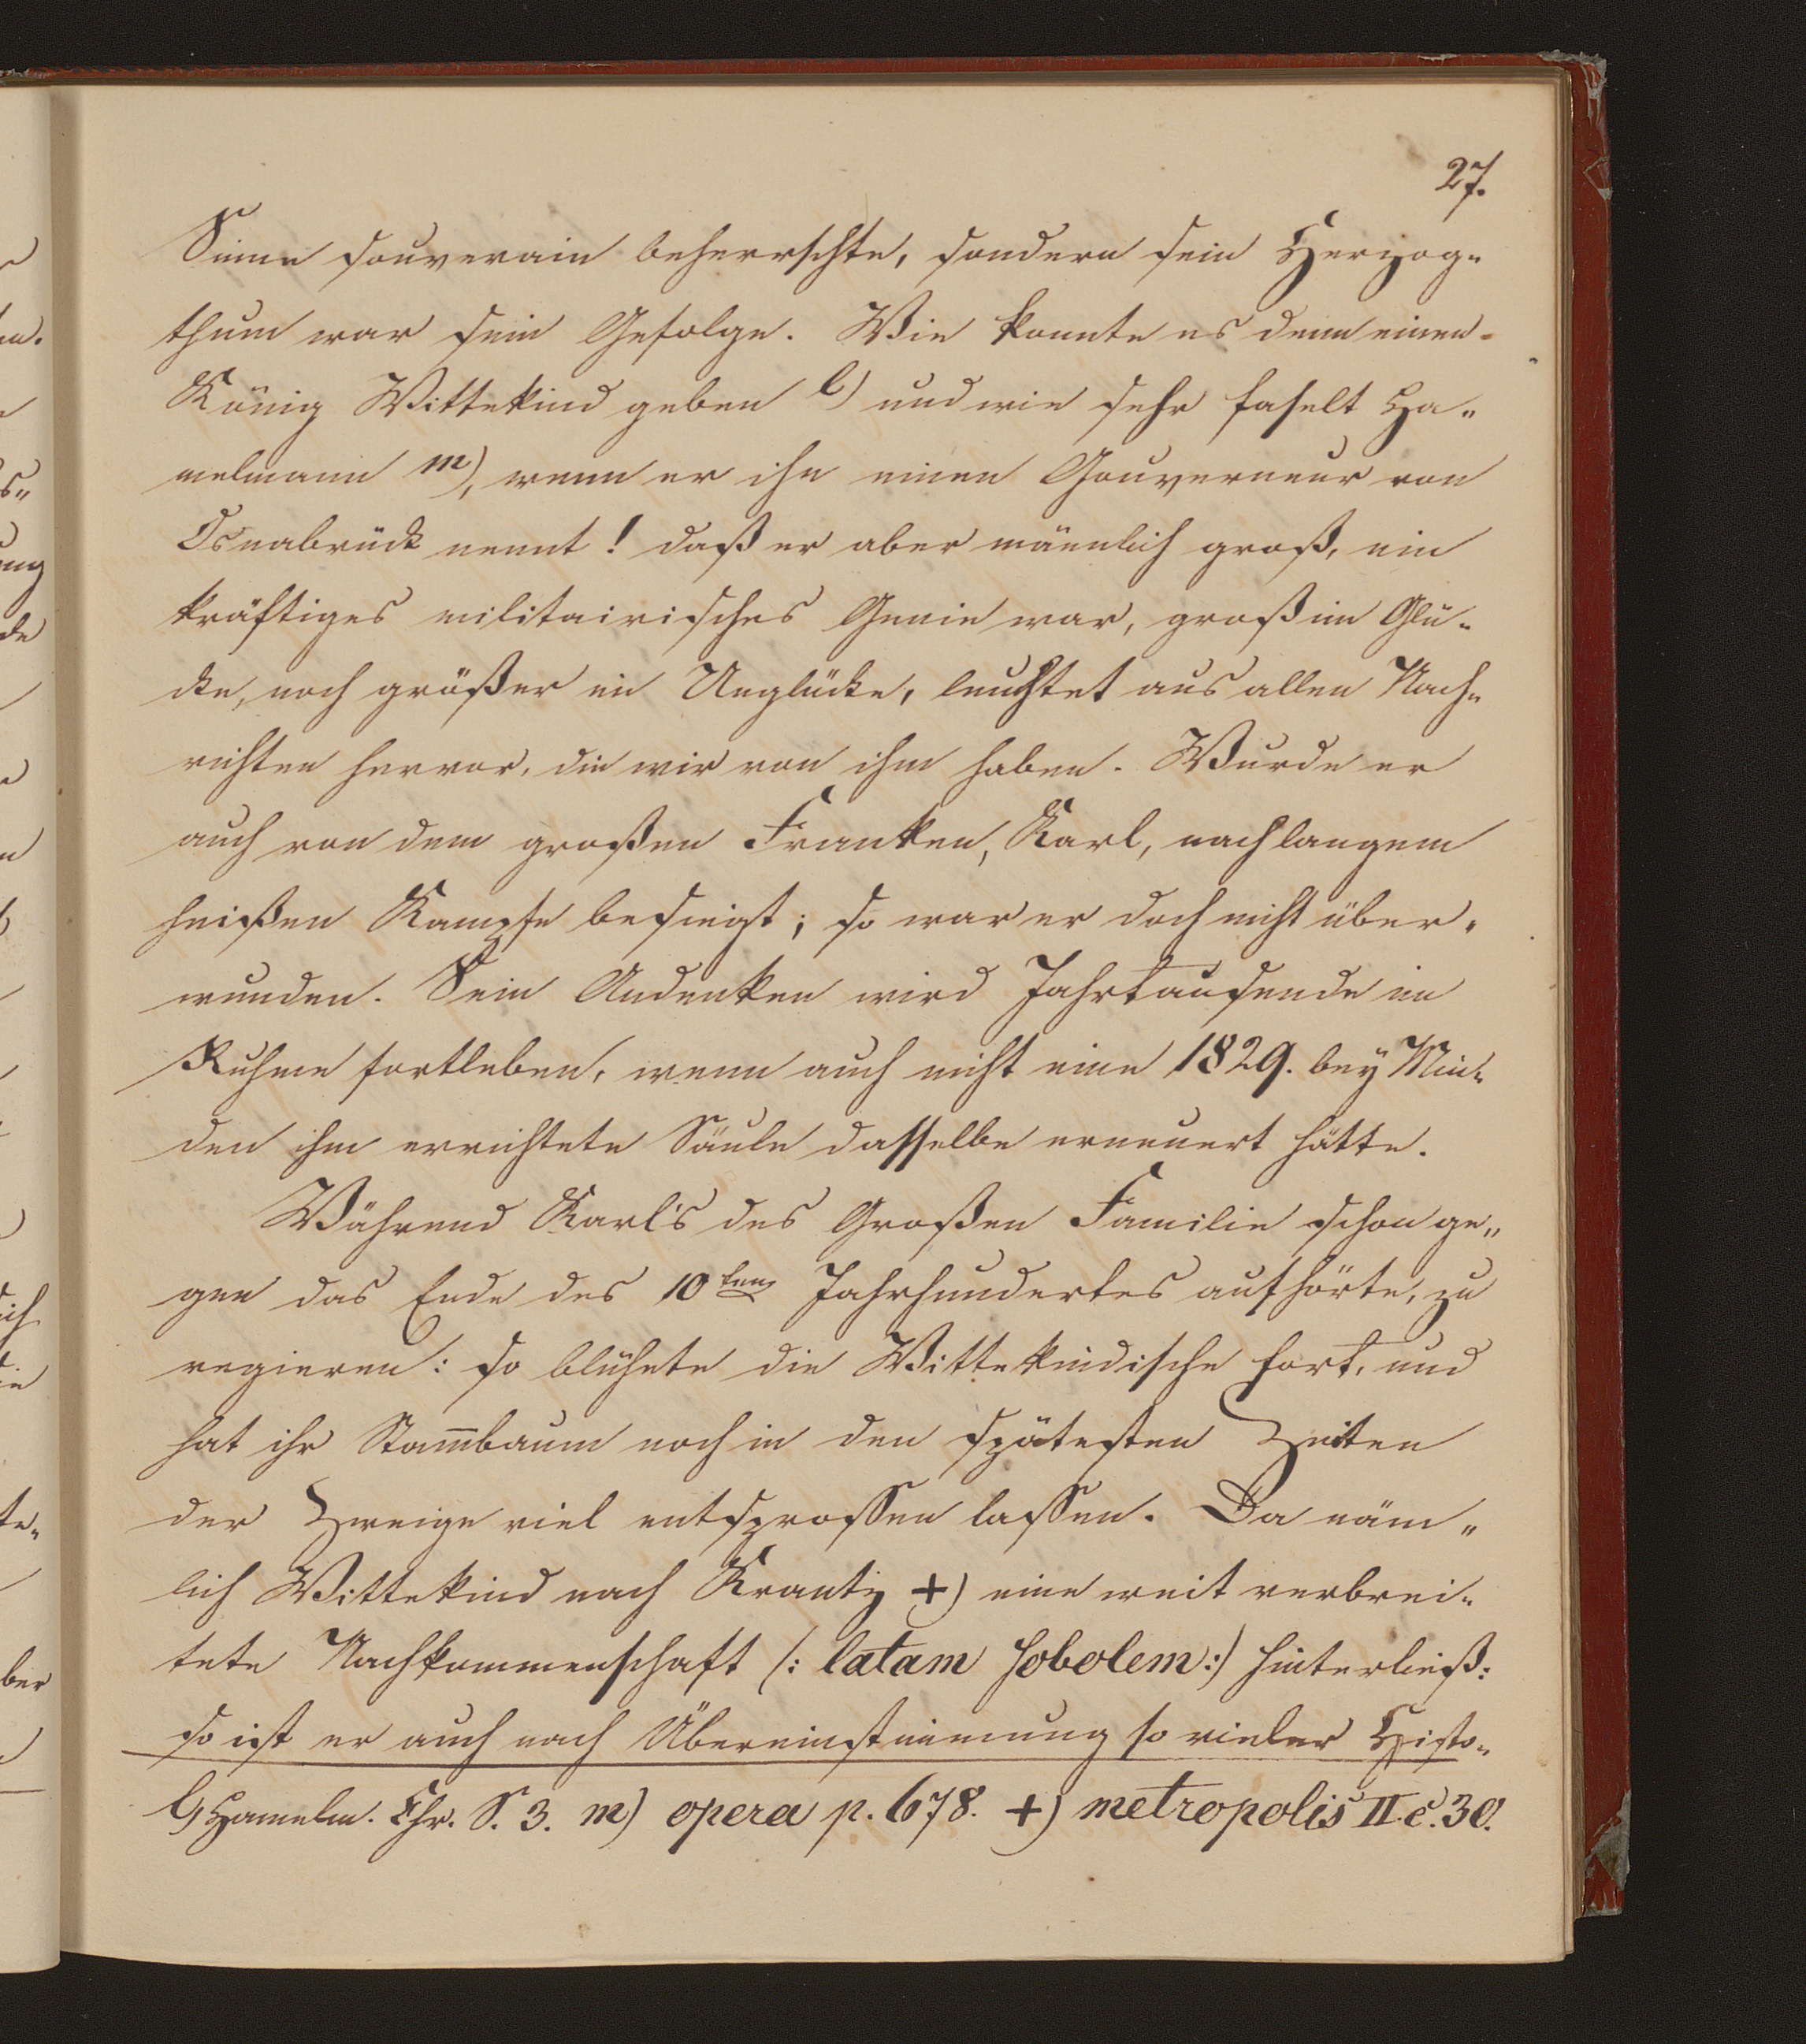 27.
Sinne souverain beherrschte, sondern sein Herzog-
thum war sein Gefolge. Wie konnte es denn einen
König Wittekind geben l) und wie sehr faselt Ha-
melmann m), wenn er ihn einen Gouverneur von
Osnabrück nennt! daß er aber männlich groß, ein
kräftiges militairisches Genie war, groß im Glü-
cke, noch größer im Unglücke, leuchtet aus allen Nach-
richten hervor, die wir von ihm haben. Wurde er
auch von dem großen Franken, Karl, nach langem
heißen Kampfe besiegt; so war er doch nicht über-
wunden. Sein Andenken wird Jahrtausende im
Ruhme fortleben, wenn auch nicht eine 1829. bey Min-
den ihm errichtete Säule dasselbe erneuert hätte.
Während Karl's des Großen Familie schon ge-
gen das Ende des 10ten Jahrhundertes aufhörte, zu
regieren: so blühete die Wittekindische fort, und
hat ihr Stam̅baum noch in den spätesten Zeiten
der Zweige viel entsprossen lassen. Da näm-
lich Wittekind nach Krantz +) eine weit verbrei-
tete Nachkommenschaft (: latam sobolem:) hinterließ:
so ist er auch nach Übereinstimmung so vieler Histo-
l) Hamelm. Chr. S. 3. m) opera p. 678. +) metropolis II. c. 30.